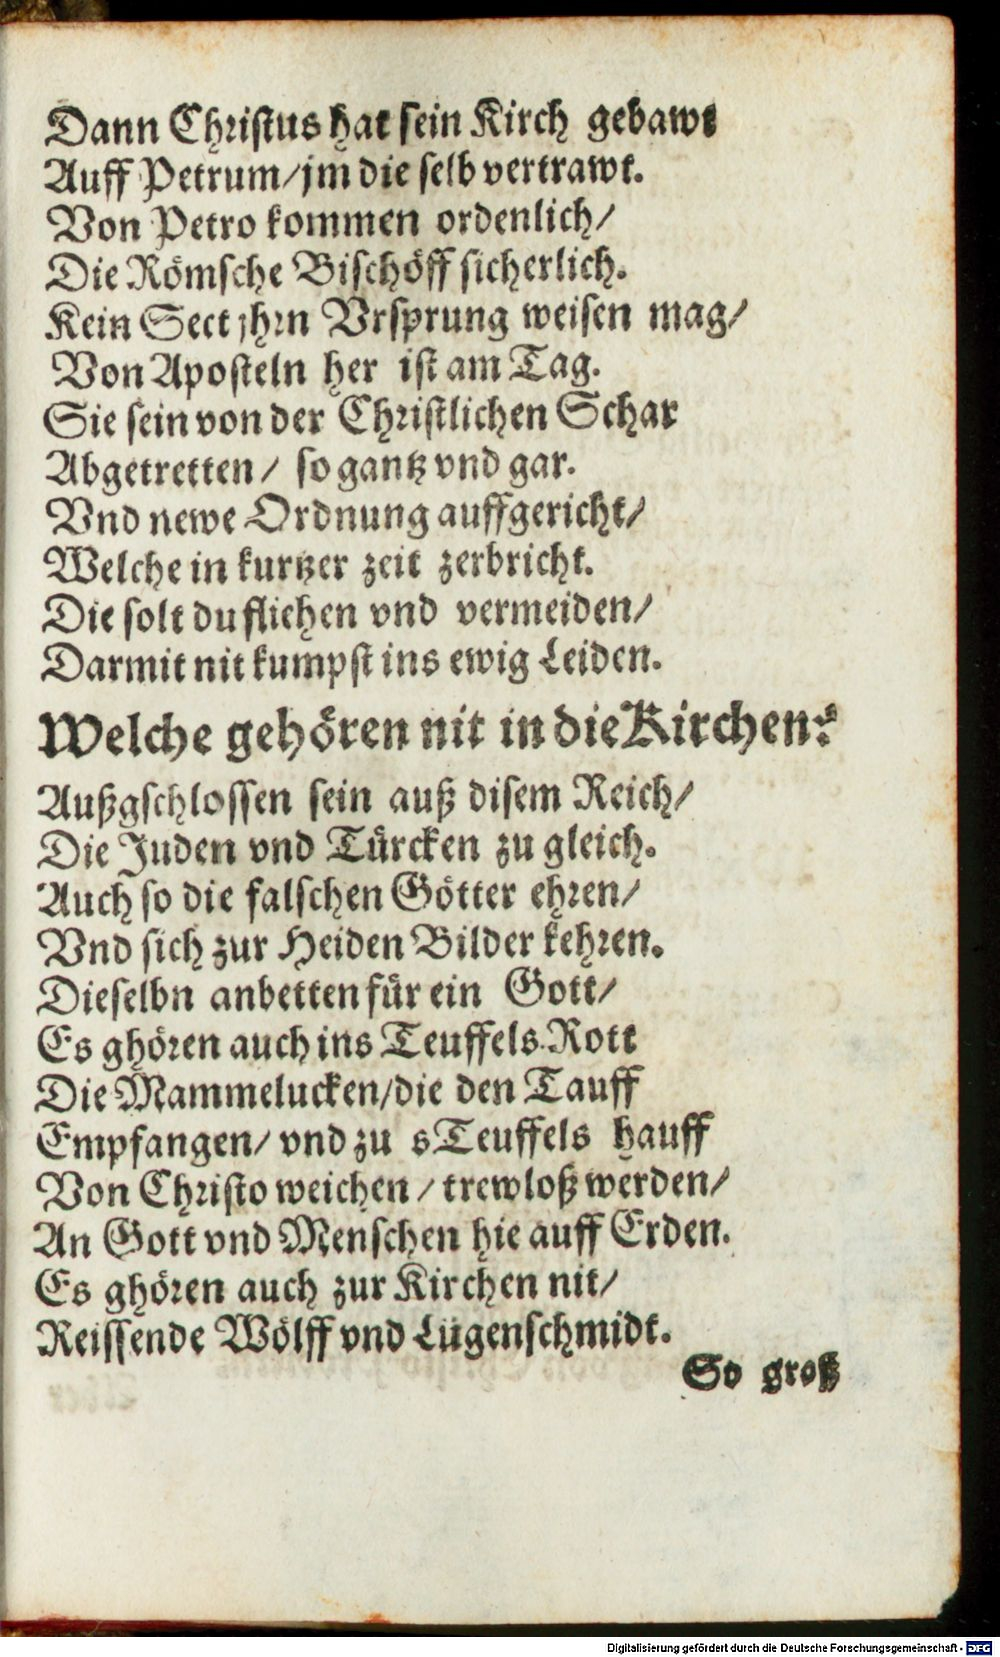 Dann Christus hat sein Kirch gebawt
Auff Petrum/jm die selb vertrawt.
Von Petro kommen ordenlich/
Die Römsche Bischöff sicherlich.
Kein Sect jhrn Vrsprung weisen mag/
Von Aposteln her ist am Tag.
Sie sein von der Christlichen Schar
Abgetretten/ so gantz vnd gar.
Vnd newe Ordnung auffgericht/
Welche in kurtzer zeit zerbricht.
Die solt du fliehen vnd vermeiden/
Darmit nit kumpst ins ewig Leiden.
Welche gehören nit in die Kirchen?
Außgschlossen sein auß disem Reich/
Die Juden vnd Türcken zu gleich.
Auch so die falschen Götter ehren/
Vnd sich zur Heiden Bilder kehren.
Dieselbn anbetten für ein Gott/
Es ghören auch ins Teuffels Rott
Die Mammelucken/die den Tauff
Empfangen/ vnd zu s Teuffels hauff
Von Christo weichen/ trewloß werden/
An Gott vnd Menschen hie auff Erden.
Es ghören auch zur Kirchen nit/
Reissende Wölff vnd Lügenschmidt.
So groß
Digitalisierung gefördert durch die Deutsche Forschungsgemeinschaft - DFG